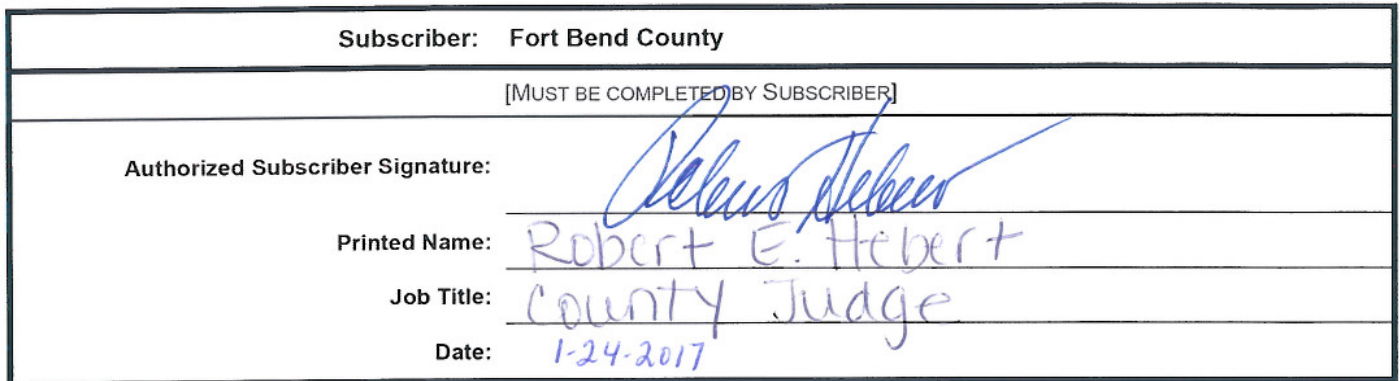 Subscriber: Fort Bend County
[MUST BE COMPLETED BY SUBSCRIBER]
Authorized Subscriber Signature: Robert Hebert
Printed Name: Robert E. Hebert
Job Title: County Judge
Date: 1-24-2017